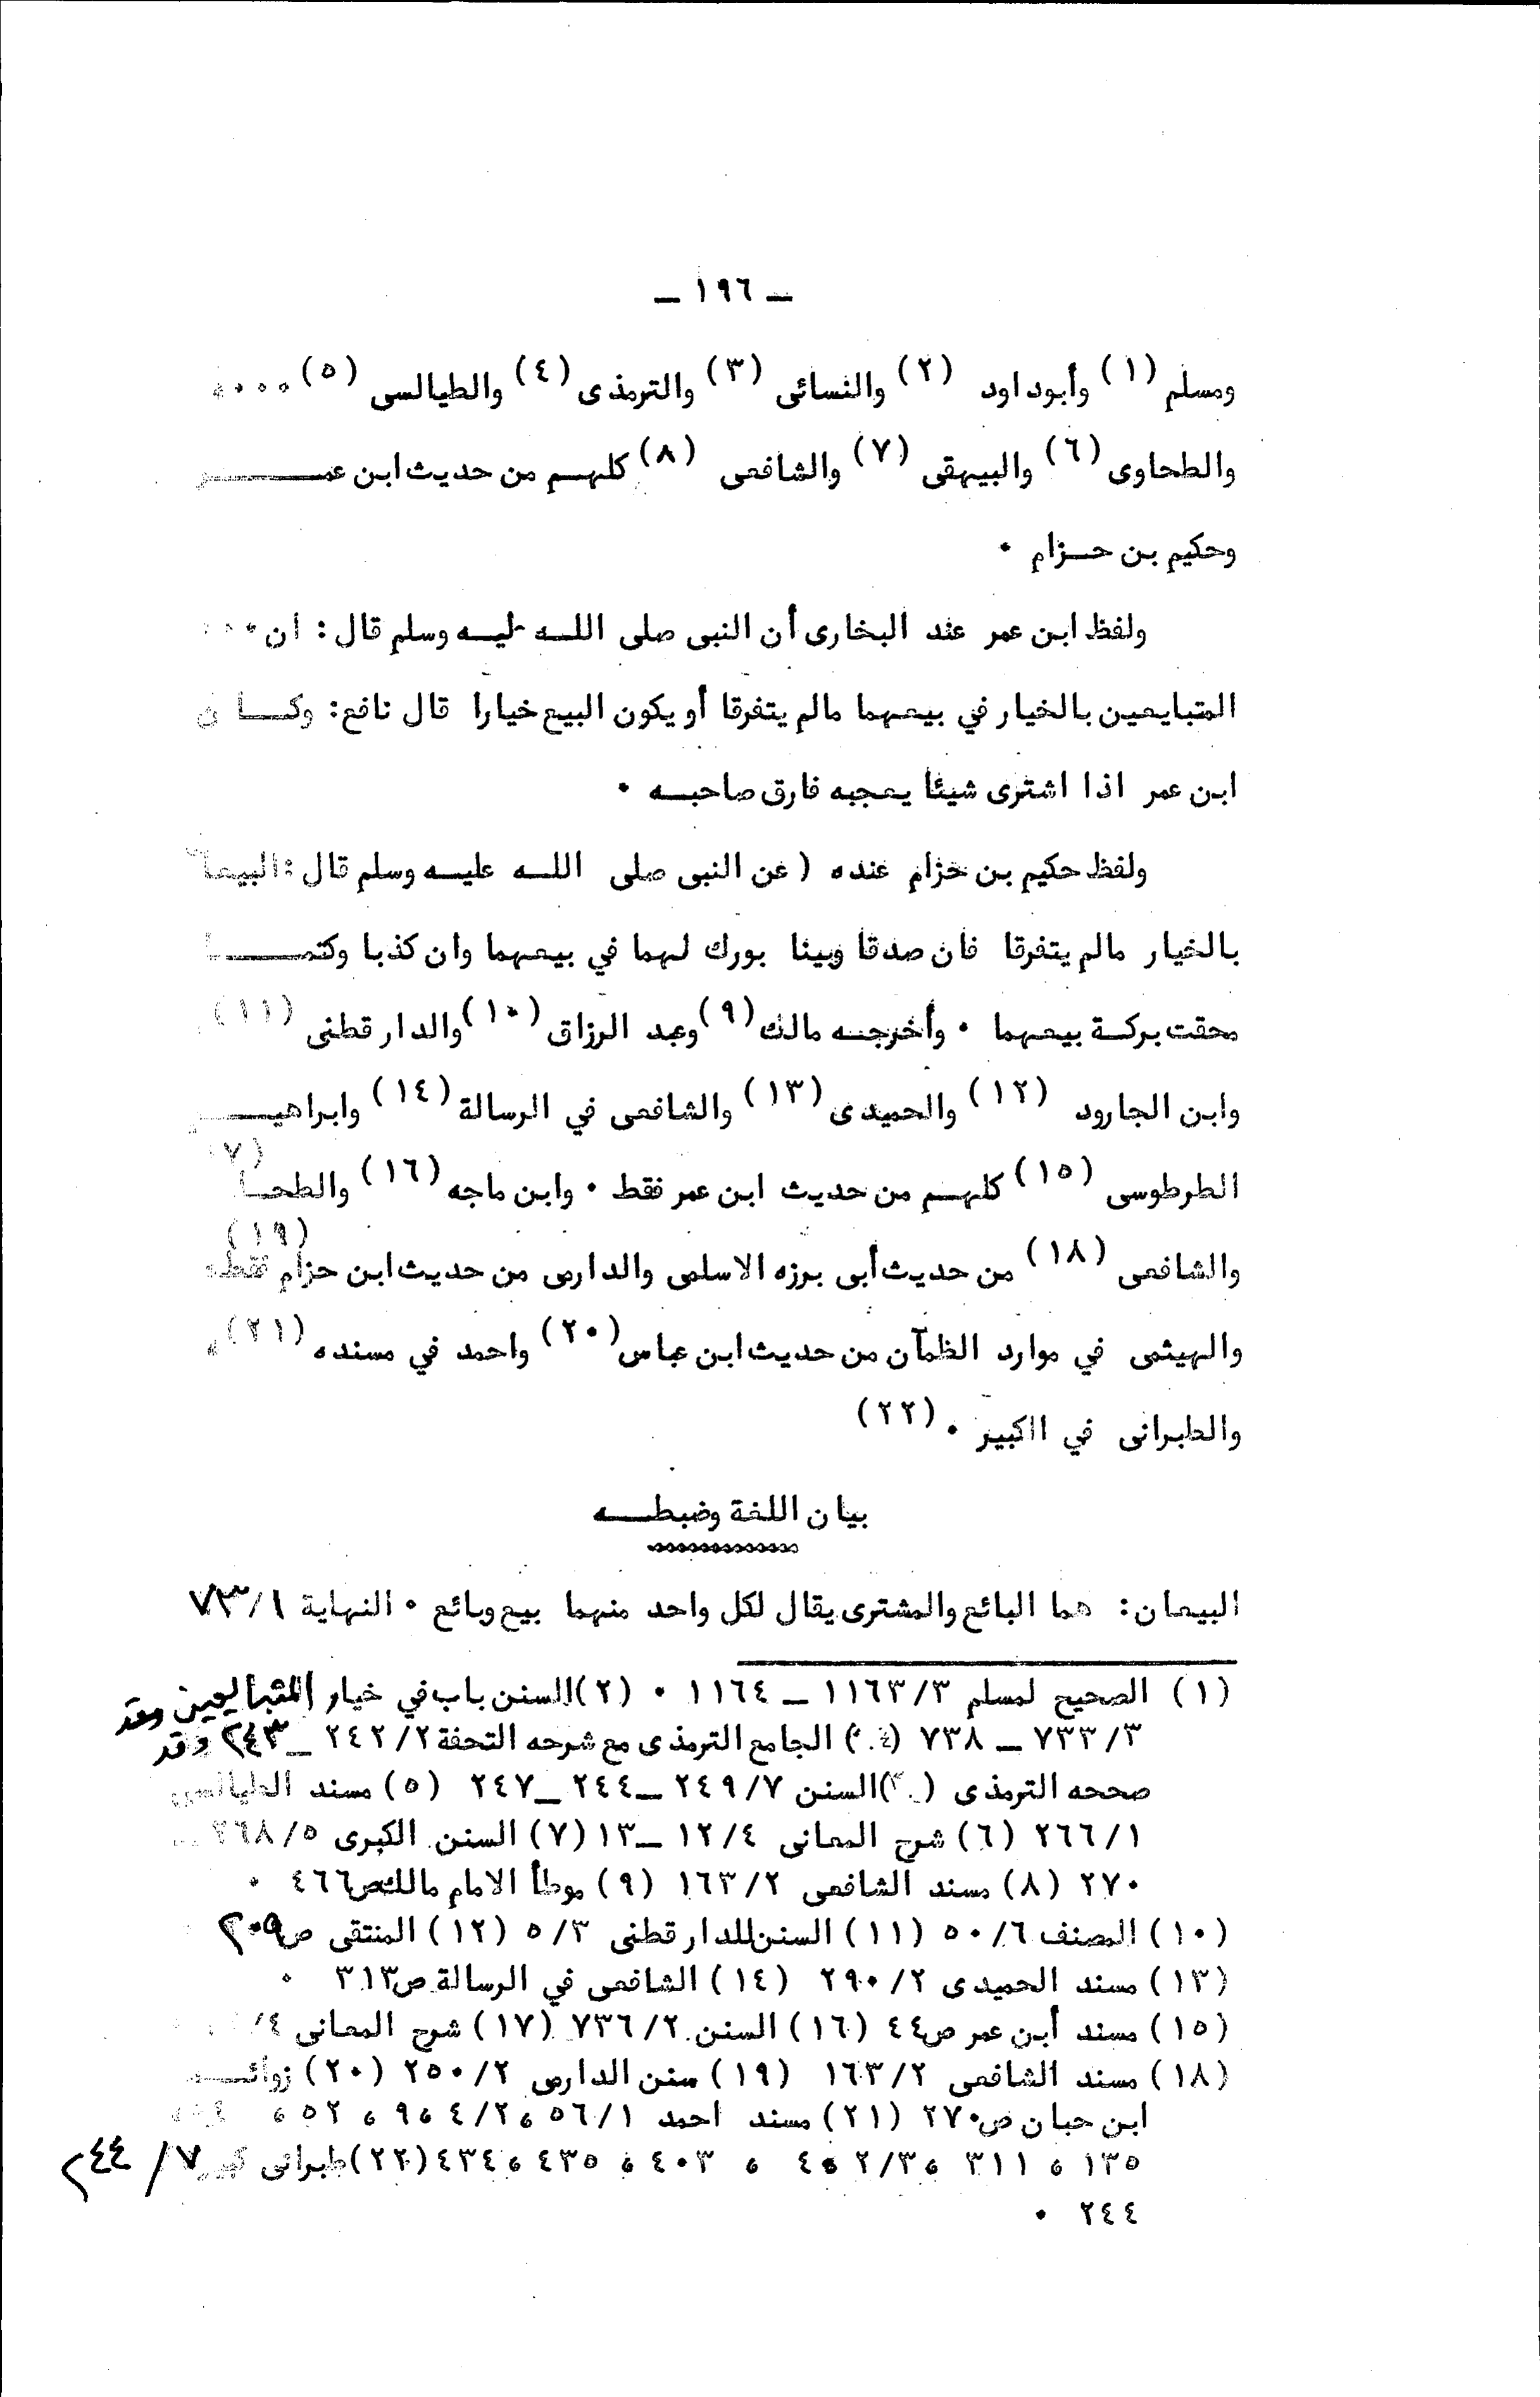 ـ ١٩٦ ـ
ومسلم (١) وأبوداود (٢) والنسائى (٣) والترمذى (٤) والطيالسى (٥) ٠٠٠٠
والطحاوى (٦) والبيهقى (٧) والشافعى (٨) كلهم من حديث ابن عمـــر
وحكيم بن حـزام ٠
ولفظ ابن عمر عند البخارى أن النبى صلى اللـه عليـه وسلم قال : ان ٠٠٠
المتبايعين بالخيار في بيعهما مالم يتفرقا أو يكون البيع خيارا قال نافع : وكــان
ابن عمر اذا اشترى شيئا يعجبه فارق صاحبـه ٠
ولفظ حكيم بن حزام عنده ( عن النبى صلى اللـه عليـه وسلم قال : البيعا
بالخيار مالم يتفرقا فان صدقا وبينا بورك لهما في بيعهما وان كذبا وكتمـــا
محقت بركـة بيعهما ٠ وأخرجـه مالك (٩) وعبد الرزاق (١٠) والدار قطنى (١١)
وابن الجارود (١٢) والحميدى (١٣) والشافعى في الرسالة (١٤) وابراهيــم
الطرطوسى (١٥) كلهـم من حديث ابن عمر فقط ٠ وابن ماجه (١٦) والطحــا (٧
والشافعى (١٨) من حديث أبى برزه الاسلمى والدارمى من حديث ابن حزام فقط (١٩)
والهيثمى في موارد الظمآن من حديث ابن عباس (٢٠) واحمد في مسنده (٢١)
والطبرانى في الكبير ٠ (٢٢)
بيان اللغة وضبطـــه
البيعان : هما البائع والمشترى يقال لكل واحد منهما بيع وبائع ٠ النهاية ١/٧٣
(١) الصحيح لمسلم ٣/١١٦٣ ـ ١١٦٤ ٠ (٢) السنن باب في خيار المتبايعين
٣/٧٣٣ ـ ٧٣٨ (٤) الجامع الترمذى مع شرحه التحفة ٢/٢٤٢ ـ ٢٤٣ وقد
صححه الترمذى (٣) السنن ٧/٢٤٩ ـ ٢٤٤ ـ ٢٤٧ (٥) مسند الطيالسى
١/٢٦٦ (٦) شرح المعانى ٤/١٢ ـ ١٣ (٧) السنن الكبرى ٥/٢٦٨ ـ
٢٧٠ (٨) مسند الشافعى ٢/١٦٣ (٩) موطأ الامام مالك ص٤٦٦ ٠
(١٠) المصنف ٦/٥٠ (١١) السنن للدار قطنى ٣/٥ (١٢) المنتقى ص٢٠٩
(١٣) مسند الحميدى ٢/٢٩٠ (١٤) الشافعى في الرسالة ص٣١٣ ٠
(١٥) مسند أبن عمر ص٤٤ (١٦) السنن ٢/٧٣٦ (١٧) شرح المعانى ٤/
(١٨) مسند الشافعى ٢/١٦٣ (١٩) سنن الدارمى ٢/٢٥٠ (٢٠) زوائــد
ابن حبان ص٢٧٠ (٢١) مسند احمد ١/٥٦ ، ٢/٤ ، ٩ ، ٥٢ ،
١٣٥ ، ٣١١ ، ٣/٢ ، ٤ ، ٤٠٣ ، ٤٣٥ ، ٤٣٤ (٢٢) طبرانى كبير ٧/٢٤٤
٢٤٤ ٠